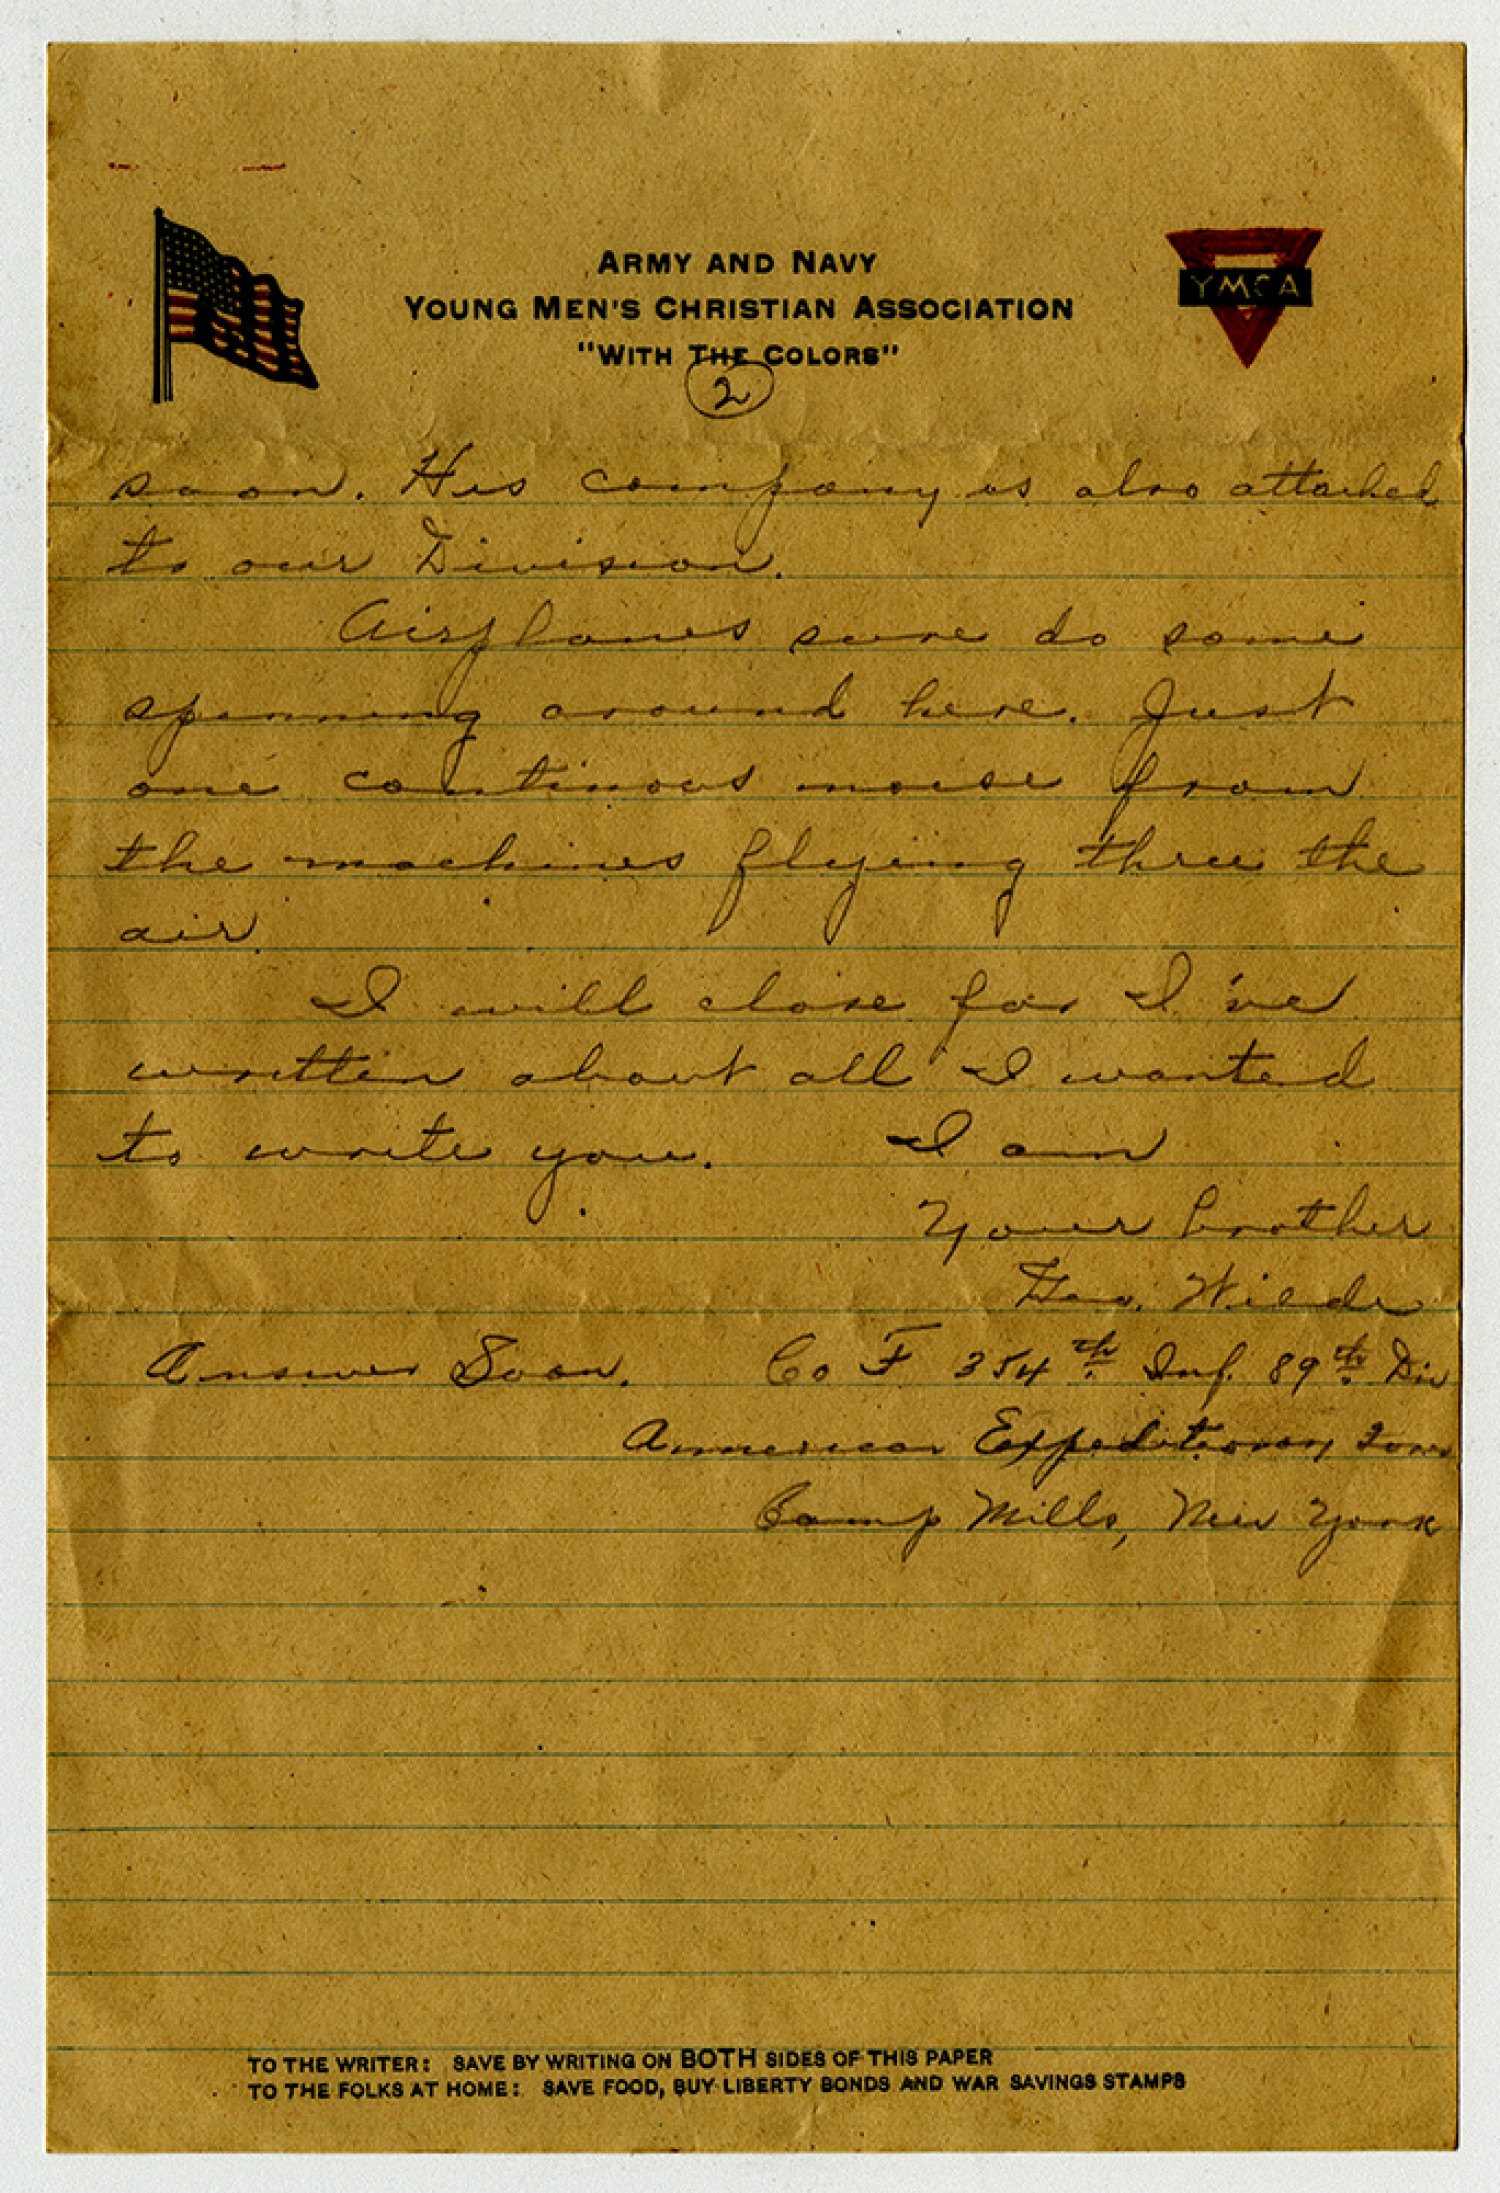 ARMY AND NAVY
YOUNG MEN'S CHRISTIAN ASSOCIATION
"WITH THE COLORS"
YMCA
2
soon. His company is also attached
to our Division.
Airplanes sure do some
spinning around here. Just
one continous noise from
the machines flying thru the
air.
I will close for I've
written about all I wanted
to write you. I am
Your brother
Geo. Wilde
Answer Soon. Co F 354th Inf. 89th Div
American Expeditionary Forces
Camp Mills, New York
TO THE WRITER: SAVE BY WRITING ON BOTH SIDES OF THIS PAPER
TO THE FOLKS AT HOME: SAVE FOOD, BUY LIBERTY BONDS AND WAR SAVINGS STAMPS